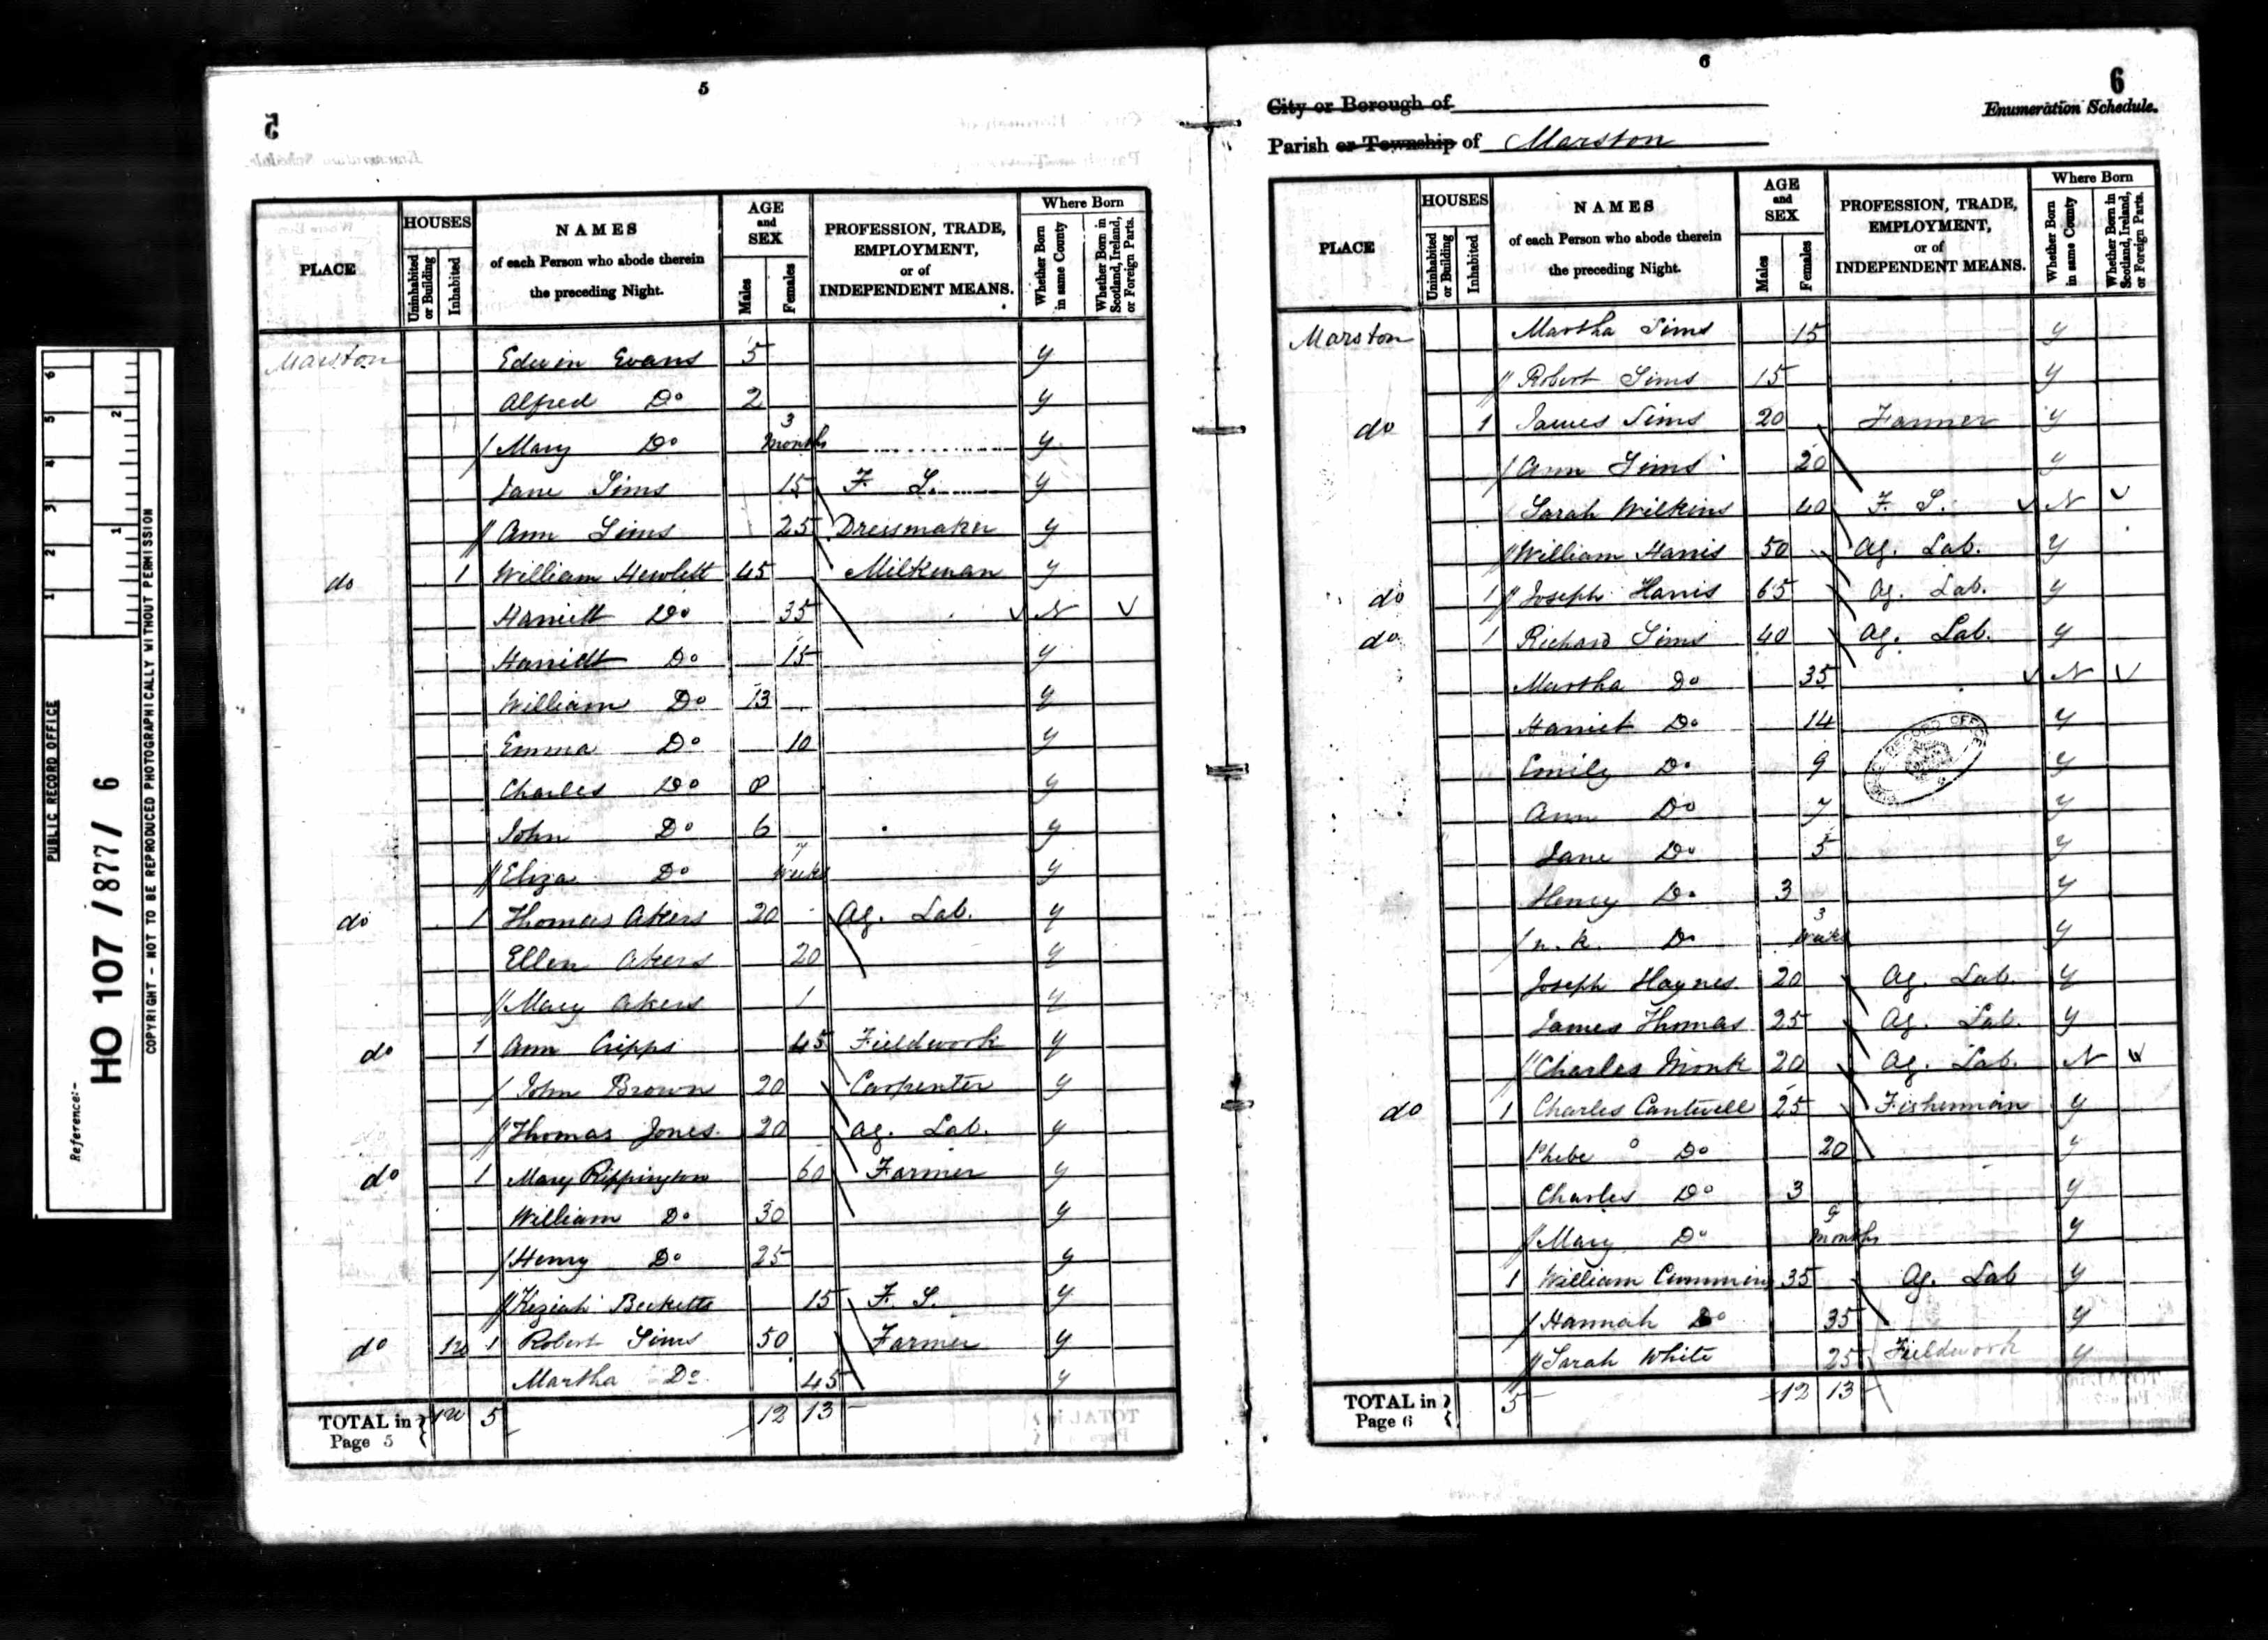 PUBLIC RECORD OFFICE
Reference:-
HO 107 / 877 / 6
COPYRIGHT - NOT TO BE REPRODUCED PHOTOGRAPHICALLY WITHOUT PERMISSION
1 2 3 4 5 6
1 2
5
5
PLACE
HOUSES
Uninhabited or Building
Inhabited
NAMES
of each Person who abode therein
the preceding Night.
AGE
and
SEX
Males
Females
PROFESSION, TRADE,
EMPLOYMENT,
or of
INDEPENDENT MEANS.
Where Born
Whether Born in same County
Whether Born in Scotland, Ireland, or Foreign Parts.
Marston Edwin Evans 5 y
Alfred Do 2 y
/ Mary Do 3 months y
Jane Sims 15 F. S. y
// Ann Sims 25 Dressmaker y
do 1 William Hewlett 45 Milkman y
Harriett Do 35 N
Harriett Do 15 y
William Do 13 y
Emma Do 10 y
Charles Do 8 y
John Do 6 y
// Eliza Do 7 weeks y
do 1 Thomas Akers 20 Ag. Lab. y
Ellen Akers 20 y
// Mary Akers 1 y
do 1 Ann Cripps 45 Fieldwork y
/ John Brown 20 Carpenter y
// Thomas Jones 20 Ag. Lab. y
do 1 Mary Rippington 60 Farmer y
William Do 30 y
/ Henry Do 25 y
// Keziah Becketts 15 F. S. y
do 1u 1 Robert Sims 50 Farmer y
Martha Do 45 y
TOTAL in Page 5 1u 5 12 13
6
6
City or Borough of
Enumeration Schedule.
Parish or Township of Marston
PLACE
HOUSES
Uninhabited or Building
Inhabited
NAMES
of each Person who abode therein
the preceding Night.
AGE
and
SEX
Males
Females
PROFESSION, TRADE,
EMPLOYMENT,
or of
INDEPENDENT MEANS.
Where Born
Whether Born in same County
Whether Born in Scotland, Ireland, or Foreign Parts.
Marston Martha Sims 15 y
// Robert Sims 15 y
do 1 James Sims 20 Farmer y
/ Ann Sims 20 y
Sarah Wilkins 40 F. S. N
// William Harris 50 Ag. Lab. y
do 1 // Joseph Harris 65 Ag. Lab. y
do 1 Richard Sims 40 Ag. Lab. y
Martha Do 35 N
Harriet Do 14 y
Emily Do 9 y
Ann Do 7 y
Jane Do 5 y
Henry Do 3 y
/ n. k. Do 3 weeks y
Joseph Haynes 20 Ag. Lab. y
James Thomas 25 Ag. Lab. y
// Charles Monk 20 Ag. Lab. N
do 1 Charles Cantwell 25 Fisherman y
Phebe Do 20 y
Charles Do 3 y
// Mary Do 9 months y
1 William Cumming 35 Ag. Lab y
/ Hannah Do 35 y
// Sarah White 25 Fieldwork y
TOTAL in Page 6 5 12 13